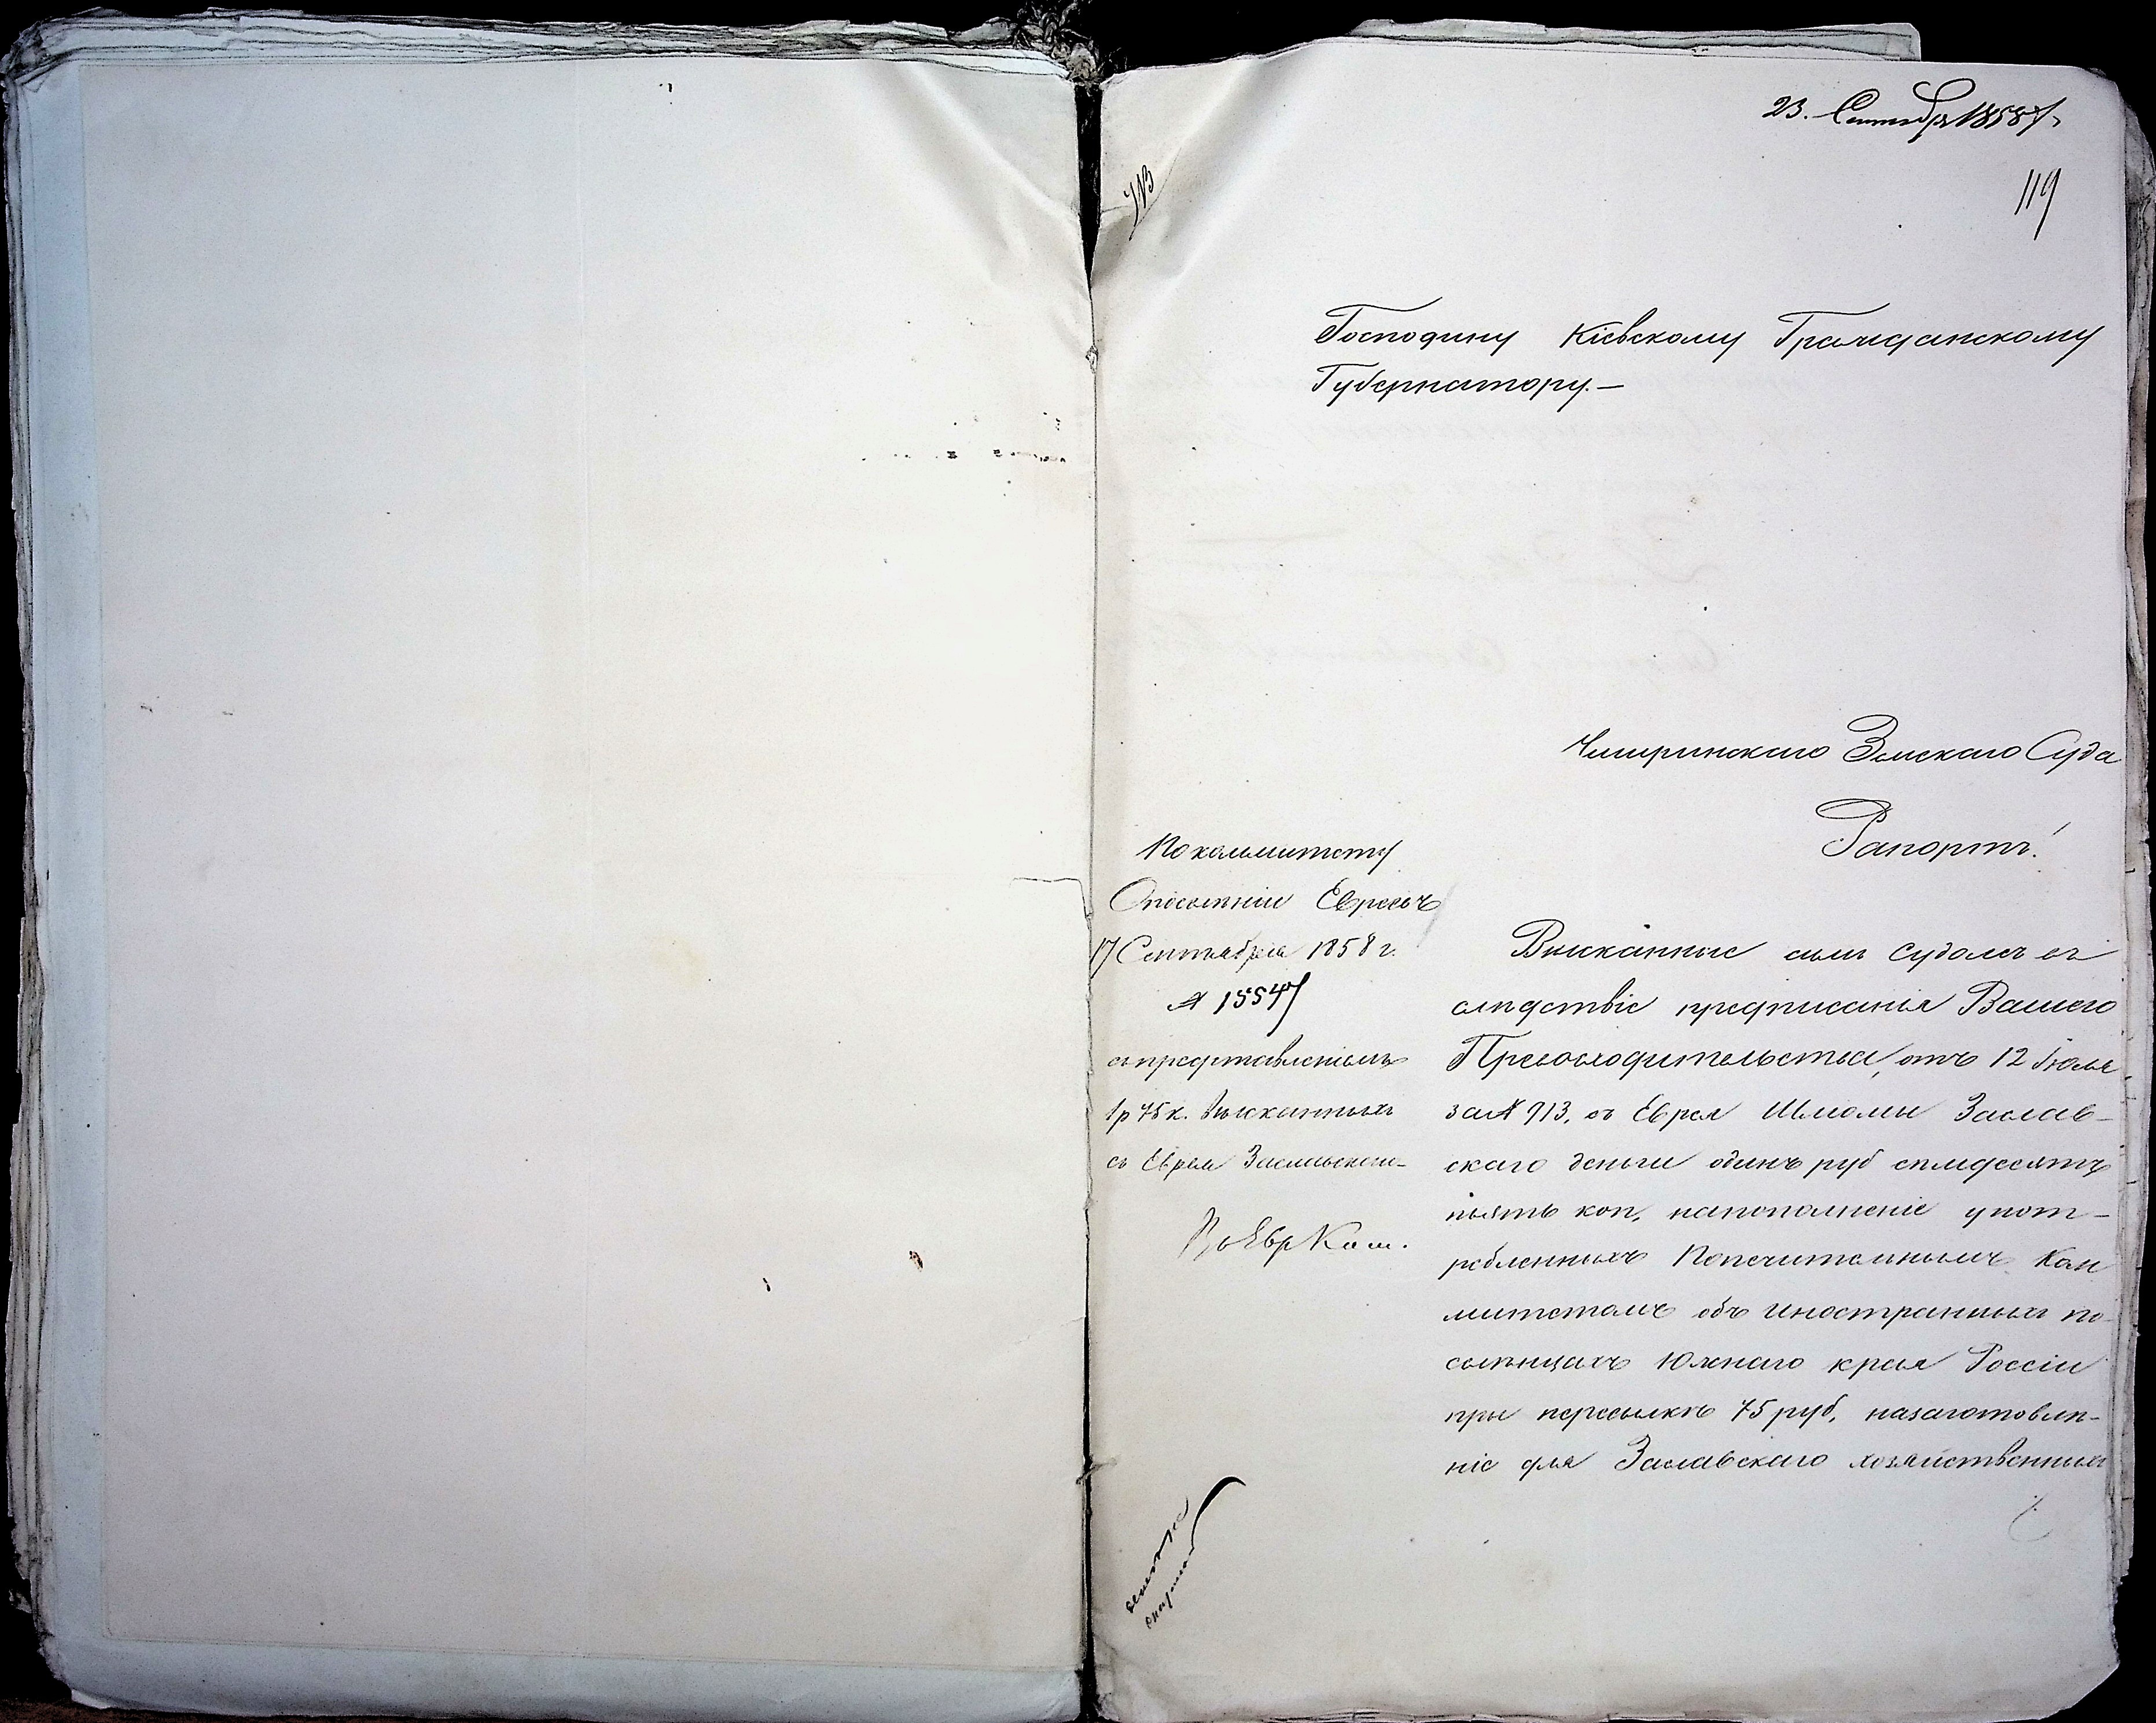 23. Сентября 1858 г.
119
913
Господину Кіевскому Гражданскому
Губернатору.—
Чигиринскаго Земскаго Суда
Рапортъ!
По коммитету
О поселеніи Евреевъ
17 Сентября 1858 г.
№ 15547
съ представленіемъ
1 р 75 к. взысканныхъ
съ Еврея Заславскаго
По Евр Ком.
Взысканные симъ Судомъ въ
слѣдствіе предписанія Вашего
Превосходительства, отъ 12 Іюля
за № 913, съ Еврея Шлиомы Заслав-
скаго деньги одинъ руб семдесятъ
пьять коп, на пополненіе упот-
ребленныхъ Попечительнымъ Ком
митетомъ объ иностранныхъ по-
селенцахъ Южнаго края Россіи
при пересылкѣ 75 руб, на заготовле-
ніе для Заславскаго хозяйственныхъ